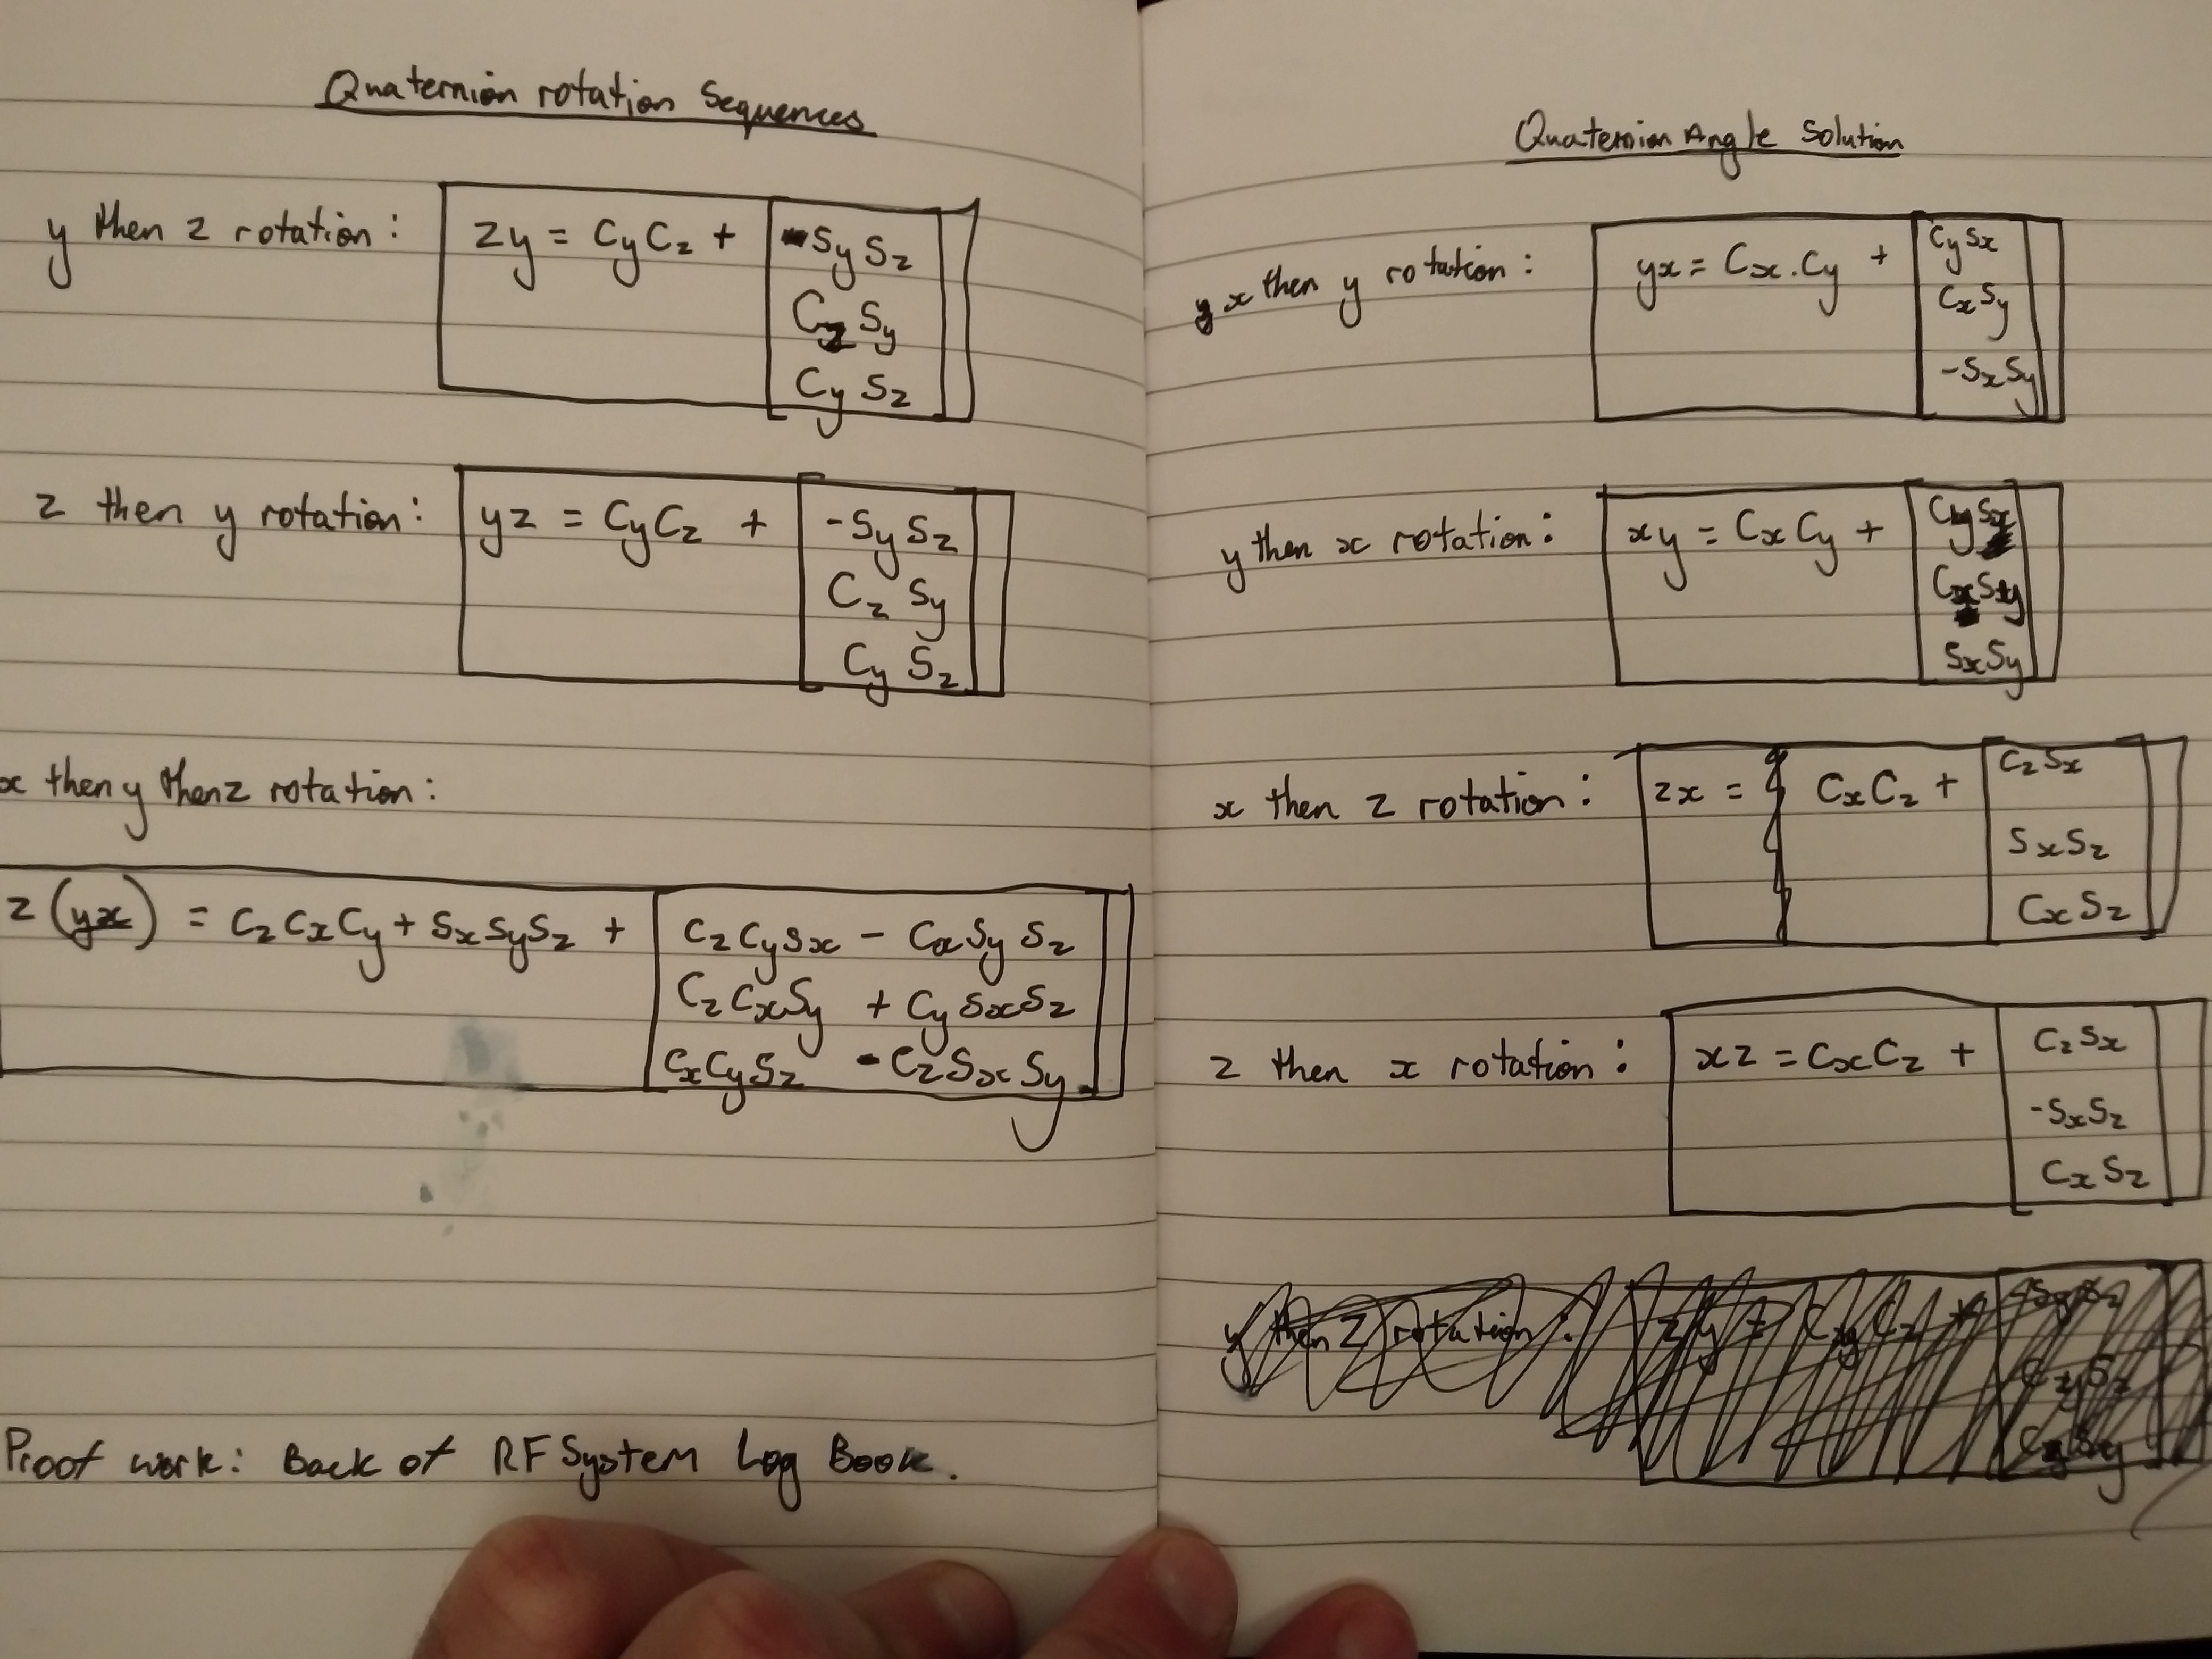 Quaternion rotation Sequences
y then z rotation: zy = CyCz + -SySz
Cz Sy
Cy Sz
z then y rotation: yz = CyCz + -SySz
Cz Sy
Cy Sz
x then y then z rotation:
z(yx) = CzCxCy + SxSySz + CzCySx - CxSySz
CzCxSy + CySxSz
CxCySz - CzSxSy
Proof work: Back of RF System Log Book.
Quaternion Angle Solution
x then y rotation: yx = Cx.Cy + CySx
CxSy
-SxSy
y then x rotation: xy = CxCy + CySx
CxSy
SxSy
x then z rotation: zx = CxCz + CzSx
SxSz
CxSz
z then x rotation: xz = CxCz + CzSx
-SxSz
CxSz
y then z rotation: zy = CyCz +